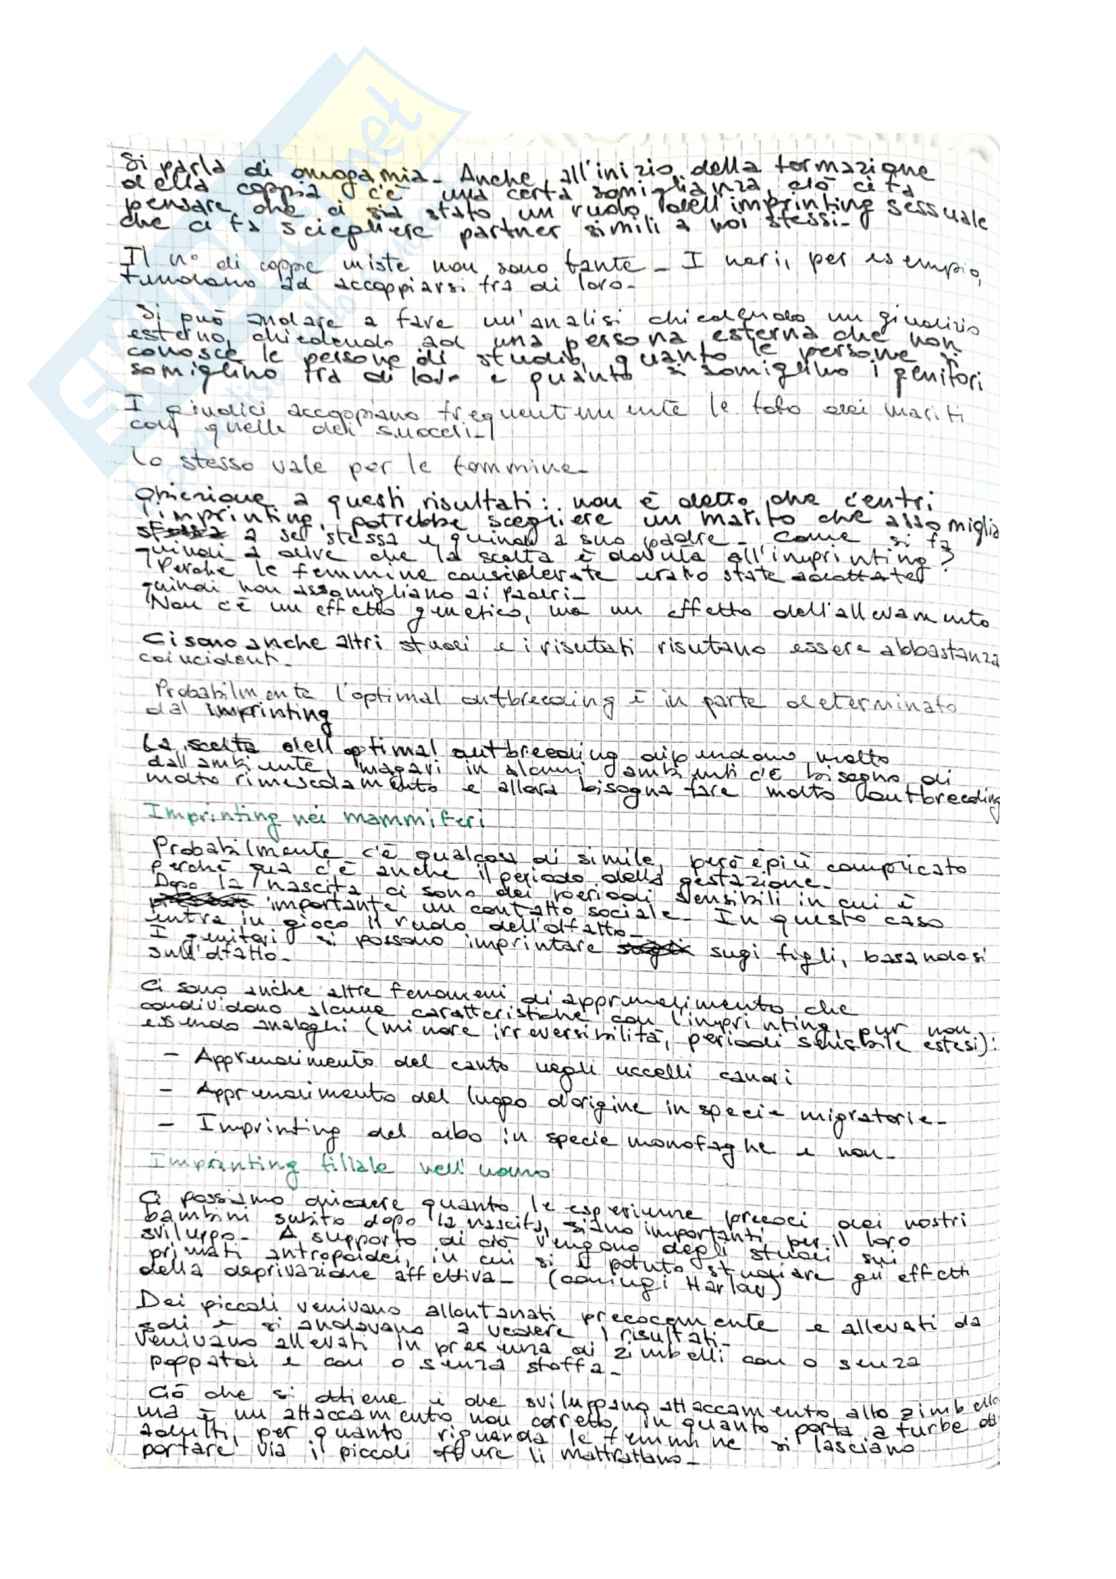 Si parla di omogamia. Anche all'inizio della formazione
della coppia c'è una certa somiglianza, ciò ci fa
pensare che ci sia stato un ruolo dell'imprinting sessuale
che ci fa sciegliere partner simili a noi stessi.
Il n° di coppie miste non sono tante. I neri, per esempio,
tendono ad accoppiarsi fra di loro.
Si può andare a fare un'analisi chiedendo un giudizio
esterno, chiedendo ad una persona esterna che non
conosce le persone di studio, quanto le persone si
somiglino fra di loro e quanto si somiglino i genitori
I giudici accoppiano frequentemente le foto dei mariti
con quelle dei suoceri.
Lo stesso vale per le femmine.
Obiezione a questi risultati: non è detto che c'entri
l'imprinting, potrebbe scegliere un marito che assomiglia
a se stessa e quindi a suo padre. Come si fa
quindi a dire che la scelta è dovuta all'imprinting?
Perchè le femmine considerate erano state adottate,
quindi non assomigliano ai padri.
Non c'è un effetto genetico, ma un effetto dell'allevamento
Ci sono anche altri studi e i risutati risutano essere abbastanza
coincidenti.
Probabilmente l'optimal outbreeding è in parte determinato
dal imprinting
La scelta dell'optimal outbreeding dipendono molto
dall'ambiente, magari in alcuni ambienti c'è bisogno di
molto rimescolamento e allora bisogna fare molto outbreeding
Imprinting nei mammiferi
Probabilmente c'è qualcosa di simile, però è più complicato
perchè qua c'è anche il periodo della gestazione.
Dopo la nascita, ci sono dei periodi sensibili in cui è
importante un contatto sociale. In questo caso
entra in gioco il ruolo dell'olfatto.
I genitori si possono imprintare sugi figli, basandosi
sull'olfatto.
Ci sono anche altre fenomeni di apprendimento che
condividono alcune caratteristiche con l'imprinting, pur non
essendo analoghi (minore irreversibilità, periodi sensibile estesi):
- Apprendimento del canto negli uccelli canori
- Apprendimento del luogo d'origine in specie migratorie.
- Imprinting del cibo in specie monofaghe e non.
Imprinting filiale nell'uomo
Ci possiamo chiedere quanto le esperienze precoci dei nostri
bambini subito dopo la nascita, siano importanti per il loro
sviluppo. A supporto di ciò vengono degli studi sui
primati antropoidei, in cui si è potuto studiare gli effetti
della deprivazione affettiva. (coniugi Harlow)
Dei piccoli venivano allontanati precocemente e allevati da
soli e si andavano a vedere i risultati.
Venivano allevati in presenza di zimbelli con o senza
poppatoi e con o senza stoffa.
Ciò che si ottiene è che sviluppano attaccamento allo zimbello
ma è un attaccamento non corretto, in quanto porta a turbe da
adulti, per quanto riguarda le femmine si lasciano
portare via i piccoli oppure li maltrattano.